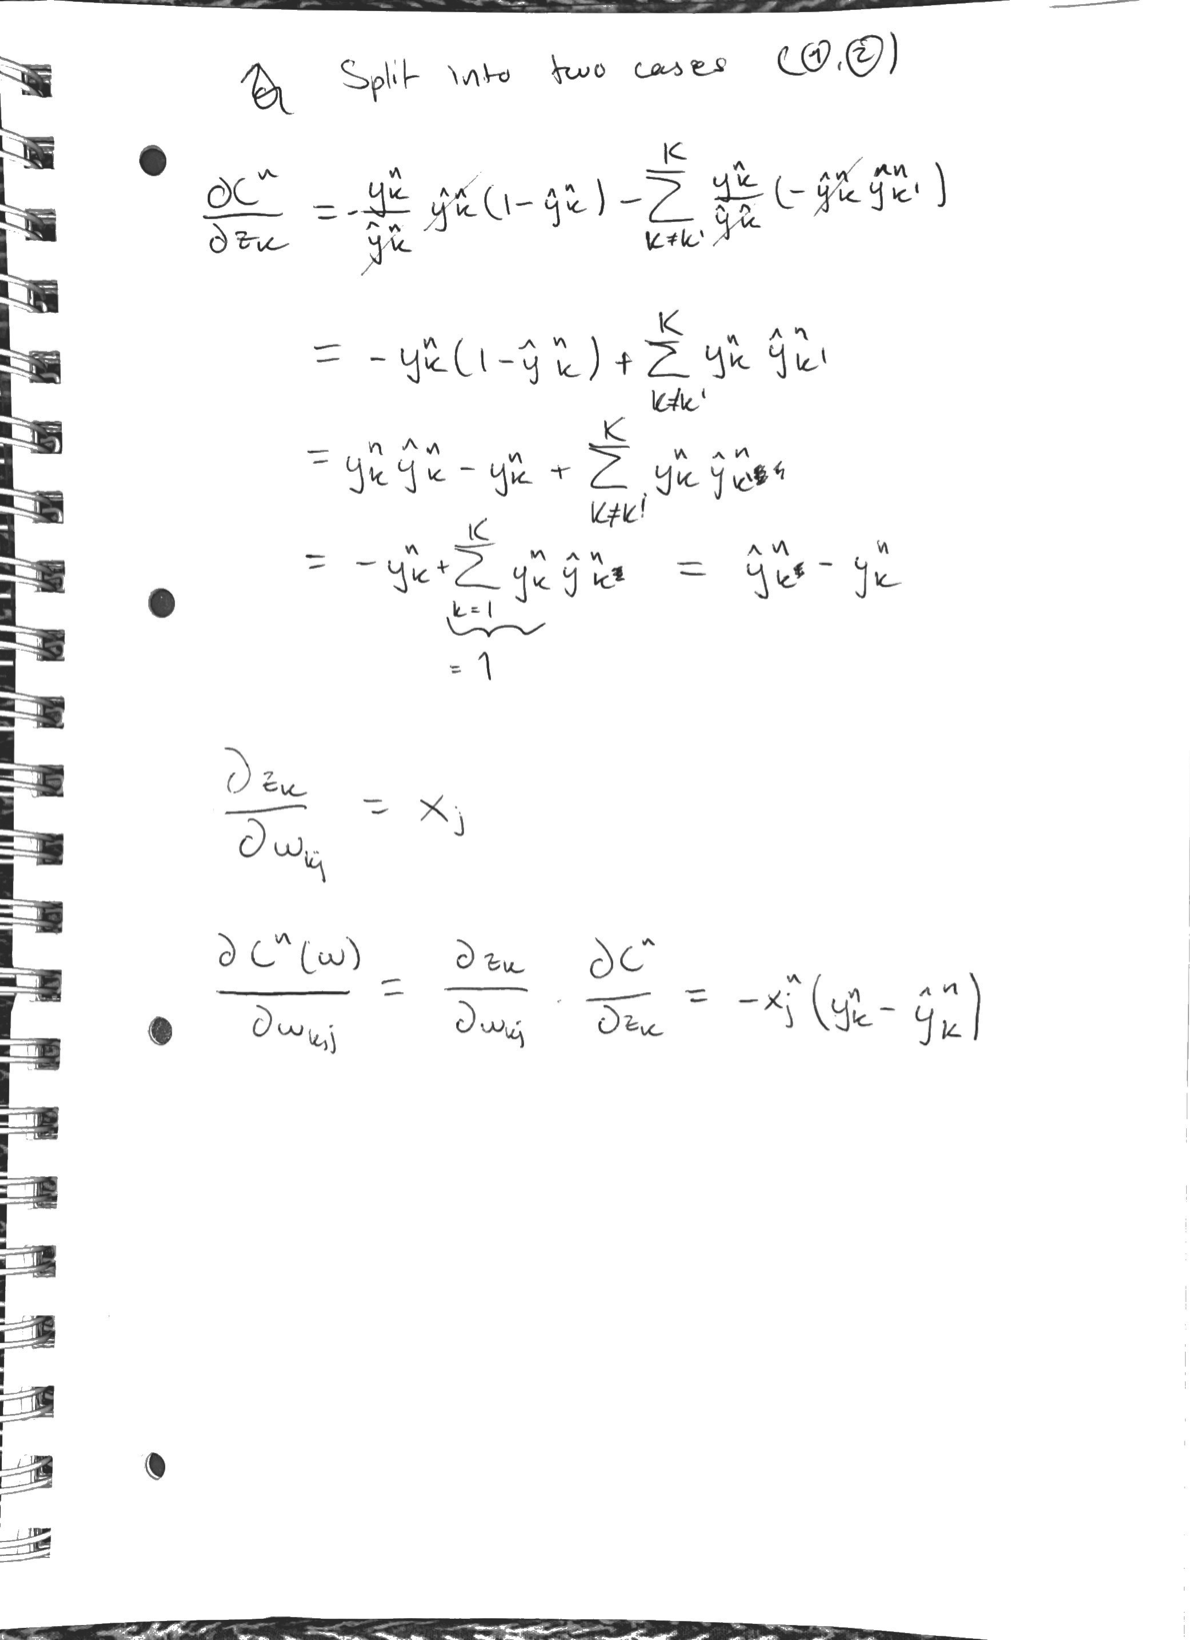 Split into two cases (①,②)
∂Cⁿ/∂z_k = -y_kⁿ/ŷ_kⁿ ŷ_kⁿ(1-ŷ_kⁿ) - Σ_{k≠k'}^K y_kⁿ/ŷ_kⁿ (-ŷ_kⁿ ŷ_k'ⁿ)
= -y_kⁿ(1-ŷ_kⁿ) + Σ_{k≠k'}^K y_kⁿ ŷ_k'ⁿ
= y_kⁿ ŷ_kⁿ - y_kⁿ + Σ_{k≠k'}^K y_kⁿ ŷ_k'ⁿ
= -y_kⁿ + Σ_{k=1}^K y_kⁿ ŷ_kⁿ = ŷ_kⁿ - y_kⁿ
= 1
∂z_k/∂w_kj = x_j
∂Cⁿ(w)/∂w_kj = ∂z_k/∂w_kj · ∂Cⁿ/∂z_k = -x_jⁿ(y_kⁿ - ŷ_kⁿ)